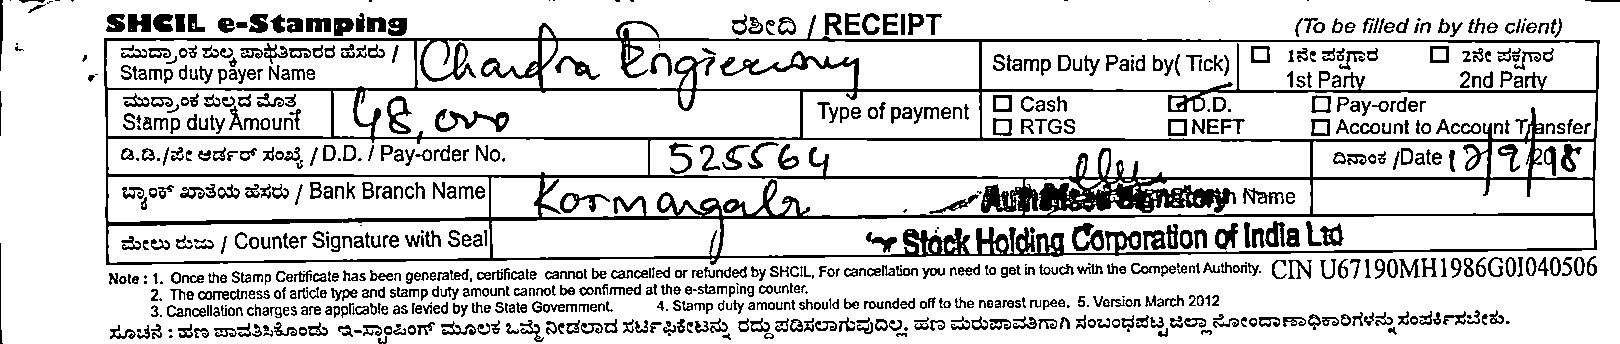 SHCIL e-Stamping ರಶೀದಿ / RECEIPT (To be filled in by the client)
ಮುದ್ರಾಂಕ ಶುಲ್ಕ ಪಾವತಿದಾರರ ಹೆಸರು / Stamp duty payer Name Chandra Engieering Stamp Duty Paid by( Tick) ☐ 1ನೇ ಪಕ್ಷಗಾರ 1st Party ☐ 2ನೇ ಪಕ್ಷಗಾರ 2nd Party
ಮುದ್ರಾಂಕ ಶುಲ್ಕದ ಮೊತ್ತ Stamp duty Amount 48,000 Type of payment ☐ Cash ☑ D.D. ☐ Pay-order
☐ RTGS ☐ NEFT ☐ Account to Account Transfer
ಡಿ.ಡಿ./ಪೇ ಆರ್ಡರ್ ಸಂಖ್ಯೆ / D.D. / Pay-order No. 525564 ದಿನಾಂಕ /Date 12/9/2018
ಬ್ಯಾಂಕ್ ಖಾತೆಯ ಹೆಸರು / Bank Branch Name Kormangala Authorised Signatory Name
ಮೇಲು ರುಜು / Counter Signature with Seal Stock Holding Corporation of India Ltd
Note : 1. Once the Stamp Certificate has been generated, certificate cannot be cancelled or refunded by SHCIL, For cancellation you need to get in touch with the Competent Authority. CIN U67190MH1986GOI040506
2. The correctness of article type and stamp duty amount cannot be confirmed at the e-stamping counter.
3. Cancellation charges are applicable as levied by the State Government. 4. Stamp duty amount should be rounded off to the nearest rupee. 5. Version March 2012
ಸೂಚನೆ : ಹಣ ಪಾವತಿಸಿಕೊಂಡು ಇ-ಸ್ಟಾಂಪಿಂಗ್ ಮೂಲಕ ಒಮ್ಮೆ ನೀಡಲಾದ ಸರ್ಟಿಫಿಕೇಟನ್ನು ರದ್ದು ಪಡಿಸಲಾಗುವುದಿಲ್ಲ. ಹಣ ಮರುಪಾವತಿಗಾಗಿ ಸಂಬಂಧಪಟ್ಟ ಜಿಲ್ಲಾ ನೋಂದಾಣಾಧಿಕಾರಿಗಳನ್ನು ಸಂಪರ್ಕಿಸಬೇಕು.